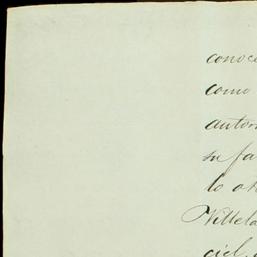 conoc
como
autor
su fa
lo ot
Villela
ciel,